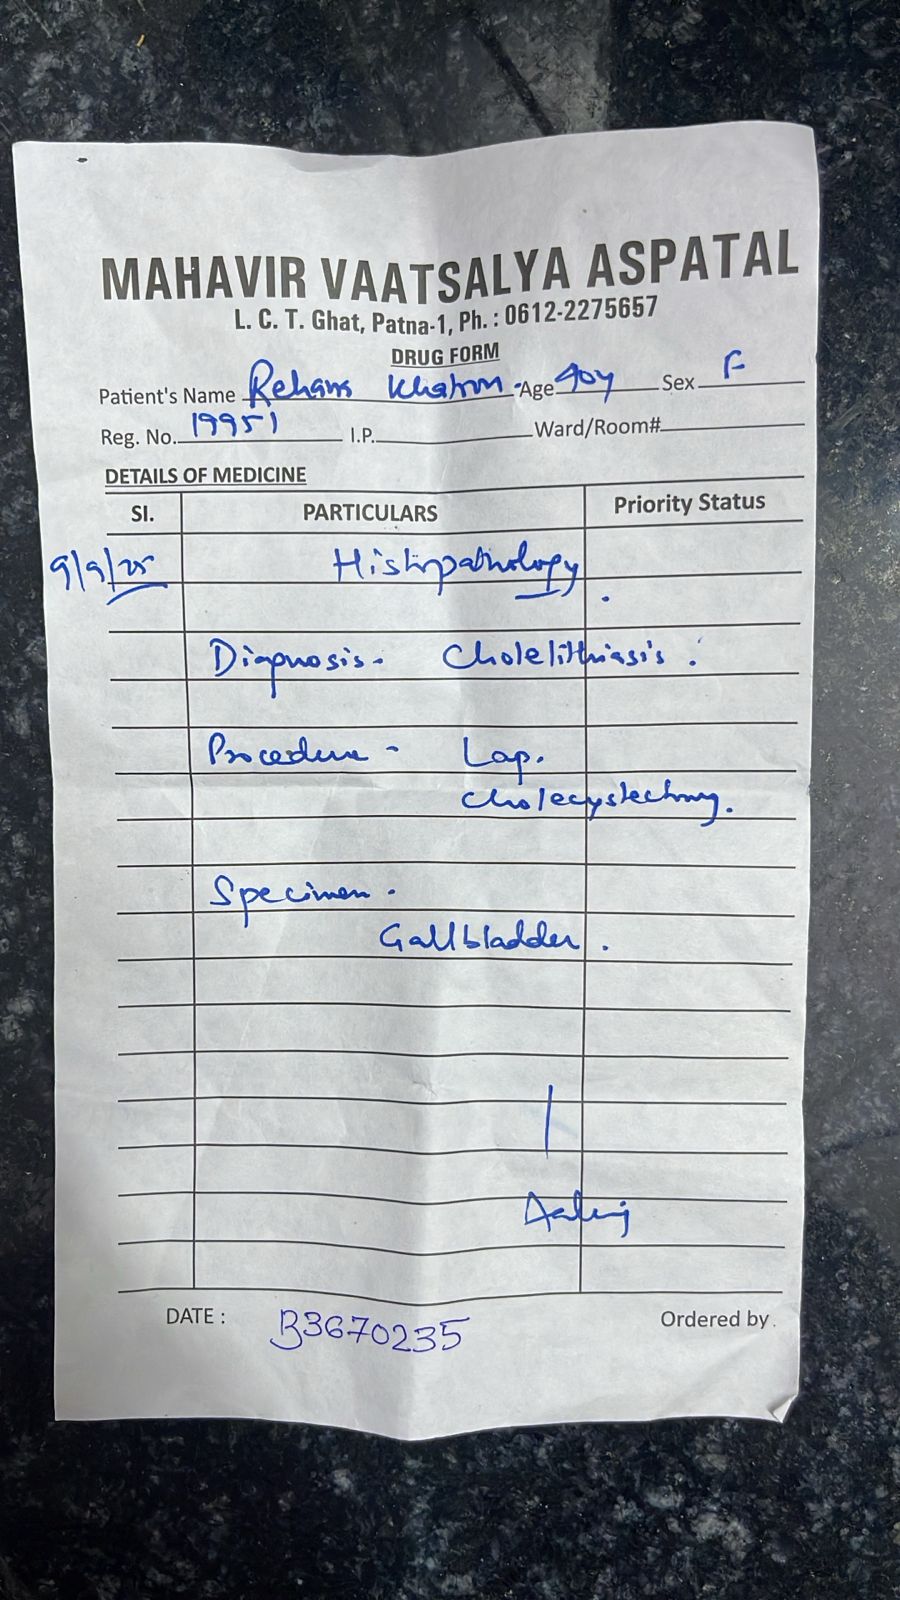 MAHAVIR VAATSALYA ASPATAL
L. C. T. Ghat, Patna-1, Ph. : 0612-2275657
DRUG FORM
Patient's Name Rehana Khatoon Age 40y Sex F
Reg. No. 19951 I.P. Ward/Room#
DETAILS OF MEDICINE
Sl. PARTICULARS Priority Status
9/9/25 Histopathology.
Diagnosis - Cholelithiasis.
Procedure - Lap.
Cholecystectomy.
Specimen -
Gallbladder.
DATE : B3670235 Ordered by.